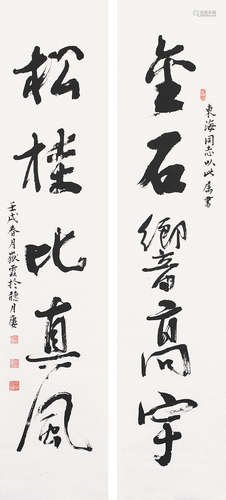 金石響高宇
東海同志以此屬書
松樸比真風
壬戌春月嶽霞於聽月廔